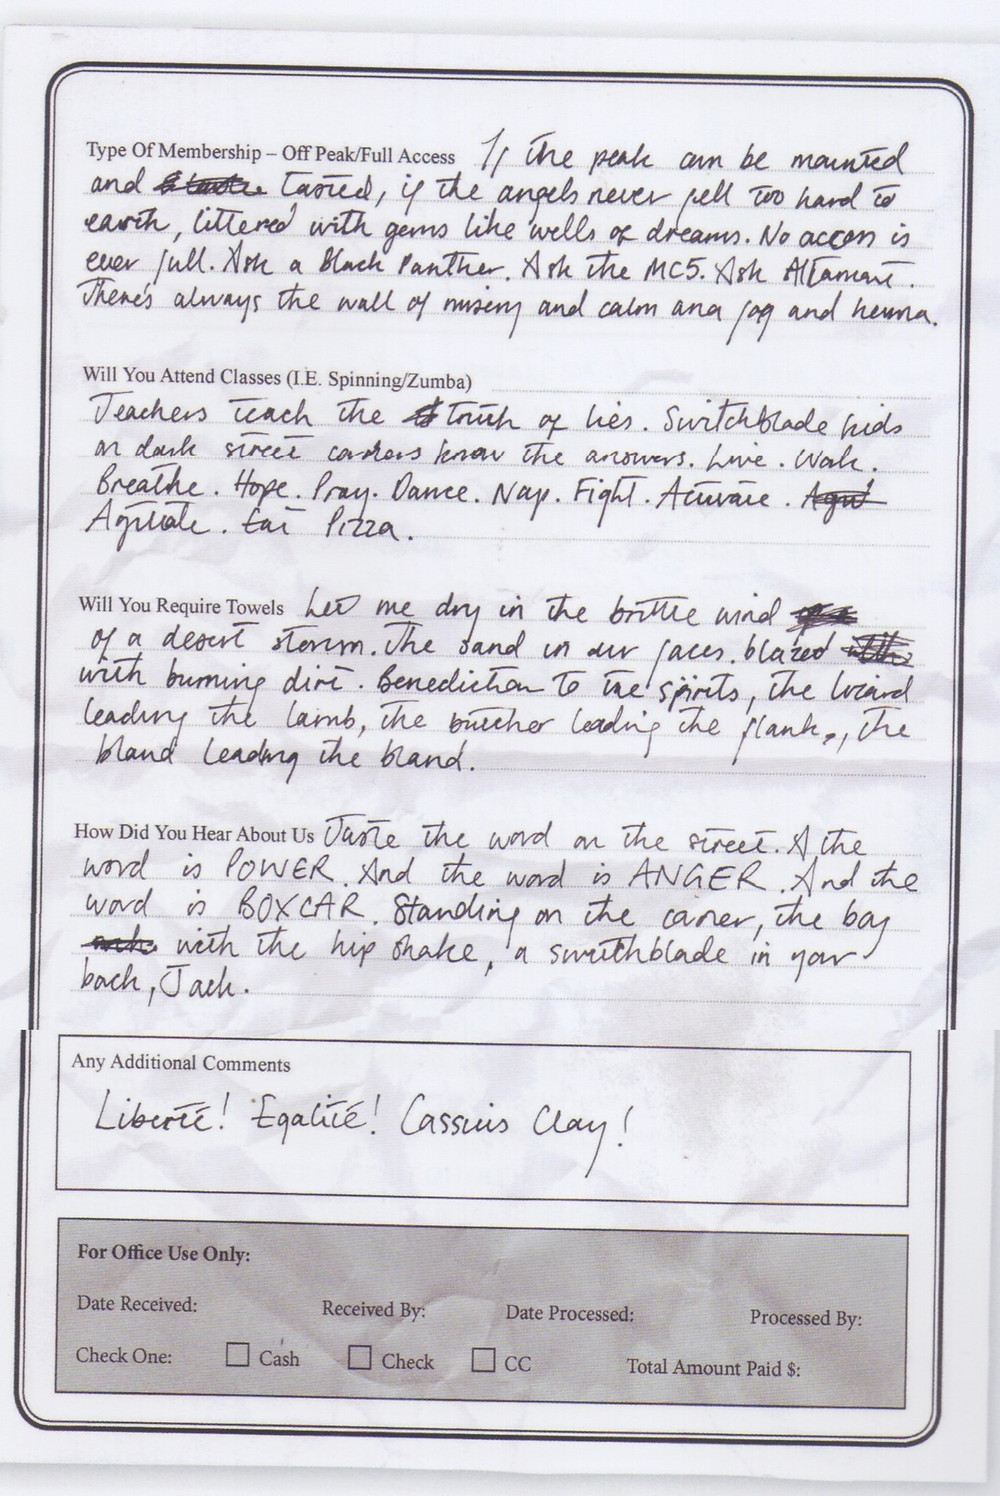 Type Of Membership – Off Peak/Full Access If the peak can be mounted
and tasted, if the angels never fell too hard to
earth, littered with gems like wells of dreams. No access is
ever full. Ask a Black Panther. Ask the MC5. Ask Altamont.
There's always the wall of misery and calm and fog and henna.
Will You Attend Classes (I.E. Spinning/Zumba)
Teachers teach the truth of lies. Switchblade kids
on dark street corners know the answers. Live. Walk.
Breathe. Hope. Pray. Dance. Nap. Fight. Activate.
Agitate. Eat Pizza.
Will You Require Towels Let me dry in the brittle wind
of a desert storm. The sand in our faces. blazed
with burning dirt. Benediction to the spirits, the lizard
leading the lamb, the butcher leading the flank, the
bland leading the bland.
How Did You Hear About Us Taste the word on the street. A the
word is POWER. And the word is ANGER. And the
word is BOXCAR. Standing on the corner, the boy
with the hip shake, a switchblade in your
back, Jack.
Any Additional Comments
Liberté! Egalité! Cassius Clay!
For Office Use Only:
Date Received: Received By: Date Processed: Processed By:
Check One: Cash Check CC Total Amount Paid $: